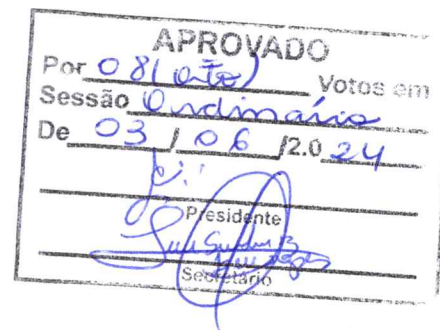 APROVADO
Por 08 (oito) Votos em
Sessão Ordinária
De 03 / 06 /2.0 24
Presidente
Secretário